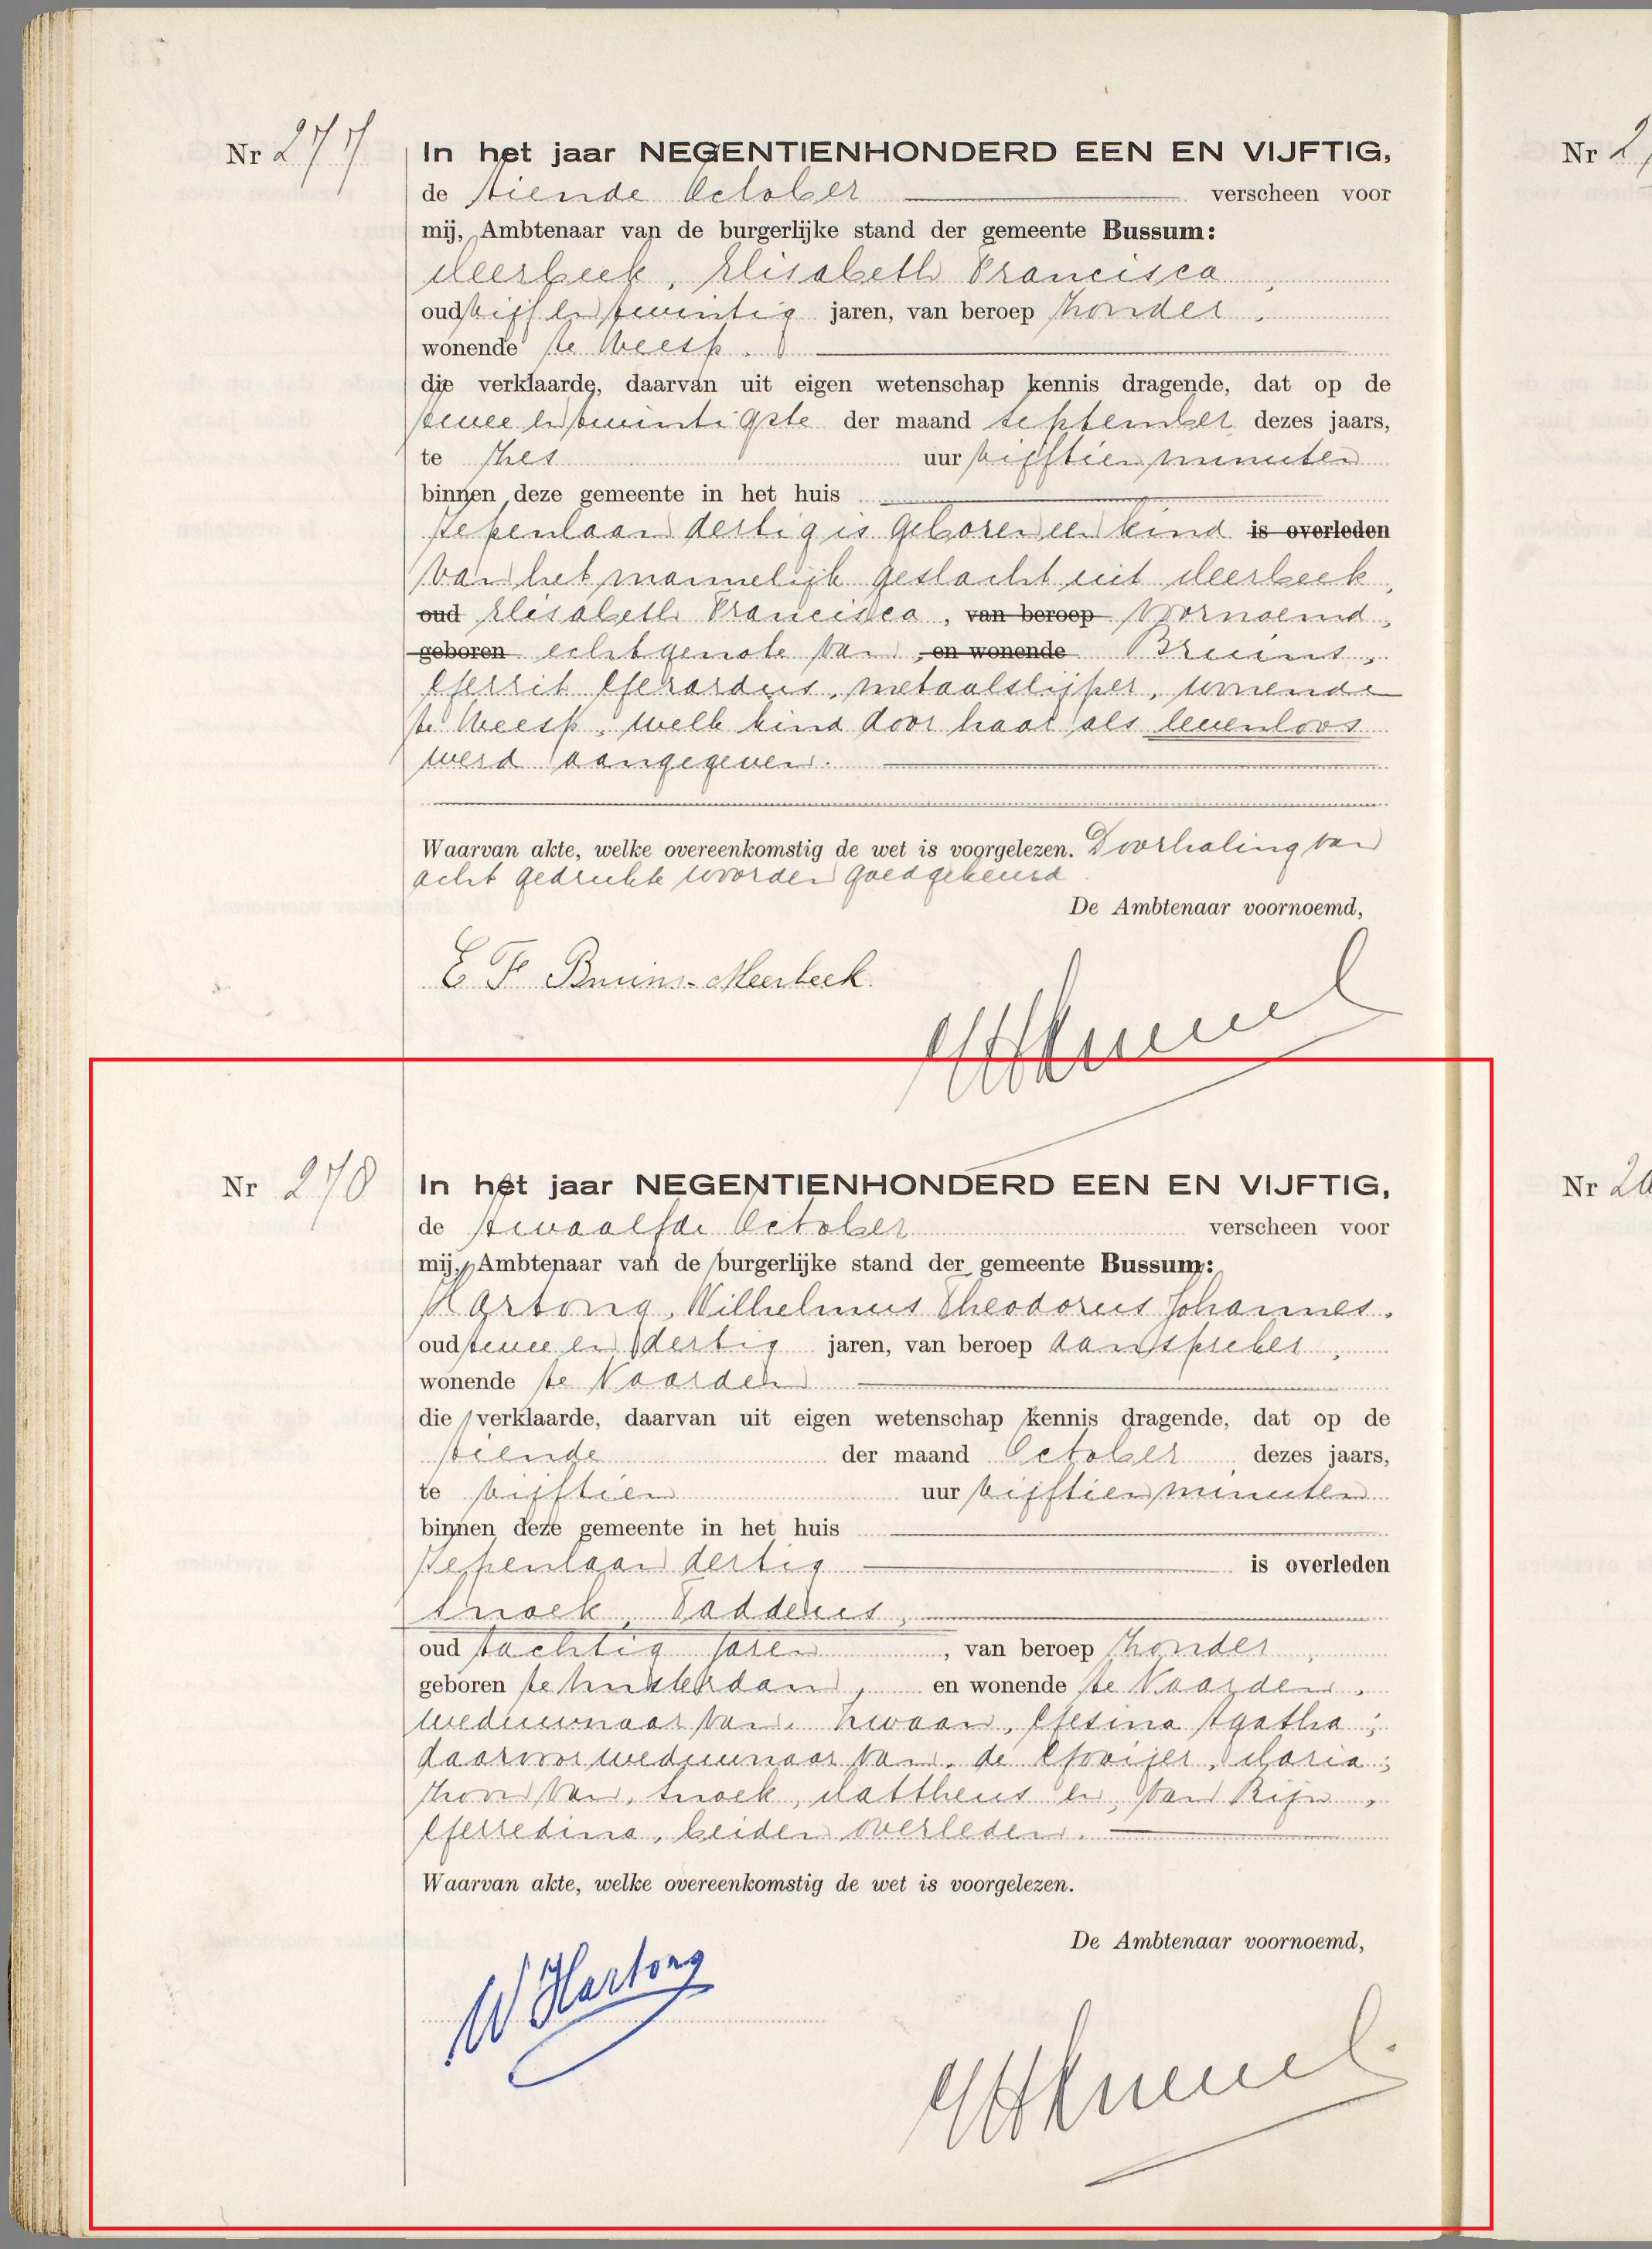 Nr 277
In het jaar NEGENTIENHONDERD EEN EN VIJFTIG,
de tiende October verscheen voor
mij, Ambtenaar van de burgerlijke stand der gemeente Bussum:
Meerbeek, Elisabeth Francisca,
oud vijf en twintig jaren, van beroep zonder,
wonende te Weesp.
die verklaarde, daarvan uit eigen wetenschap kennis dragende, dat op de
twee en twintigste der maand september dezes jaars,
te zes uur vijftien minuten
binnen deze gemeente in het huis
Iepenlaan dertig is geboren een kind is overleden
van het mannelijk geslacht uit Meerbeek,
oud Elisabeth Francisca, van beroep voornoemd,
geboren echtgenote van, en wonende Bruins,
Gerrit Gerardus, metaalslijper, wonende
te Weesp, welk kind door haar als levenloos
werd aangegeven.
Waarvan akte, welke overeenkomstig de wet is voorgelezen. Doorhaling van
acht gedrukte woorden goedgekeurd.
De Ambtenaar voornoemd,
E F Bruins-Meerbeek.
Nr 278
In het jaar NEGENTIENHONDERD EEN EN VIJFTIG,
de twaalfde October verscheen voor
mij, Ambtenaar van de burgerlijke stand der gemeente Bussum:
Hartong, Wilhelmus Theodorus Johannes,
oud twee en dertig jaren, van beroep aanspreker,
wonende te Naarden
die verklaarde, daarvan uit eigen wetenschap kennis dragende, dat op de
tiende der maand October dezes jaars,
te vijftien uur vijftien minuten
binnen deze gemeente in het huis
Iepenlaan dertig is overleden
Snoek, Taddeus,
oud tachtig jaren, van beroep zonder,
geboren te Amsterdam, en wonende te Naarden,
weduwnaar van, Zwaan, Gesina Agatha;
daarvoor weduwnaar van, de Gooijer, Maria;
zoon van, Snoek, Mattheus en, van Rijn,
Gerredina, beiden overleden.
Waarvan akte, welke overeenkomstig de wet is voorgelezen.
De Ambtenaar voornoemd,
W Hartong
Nr
Nr